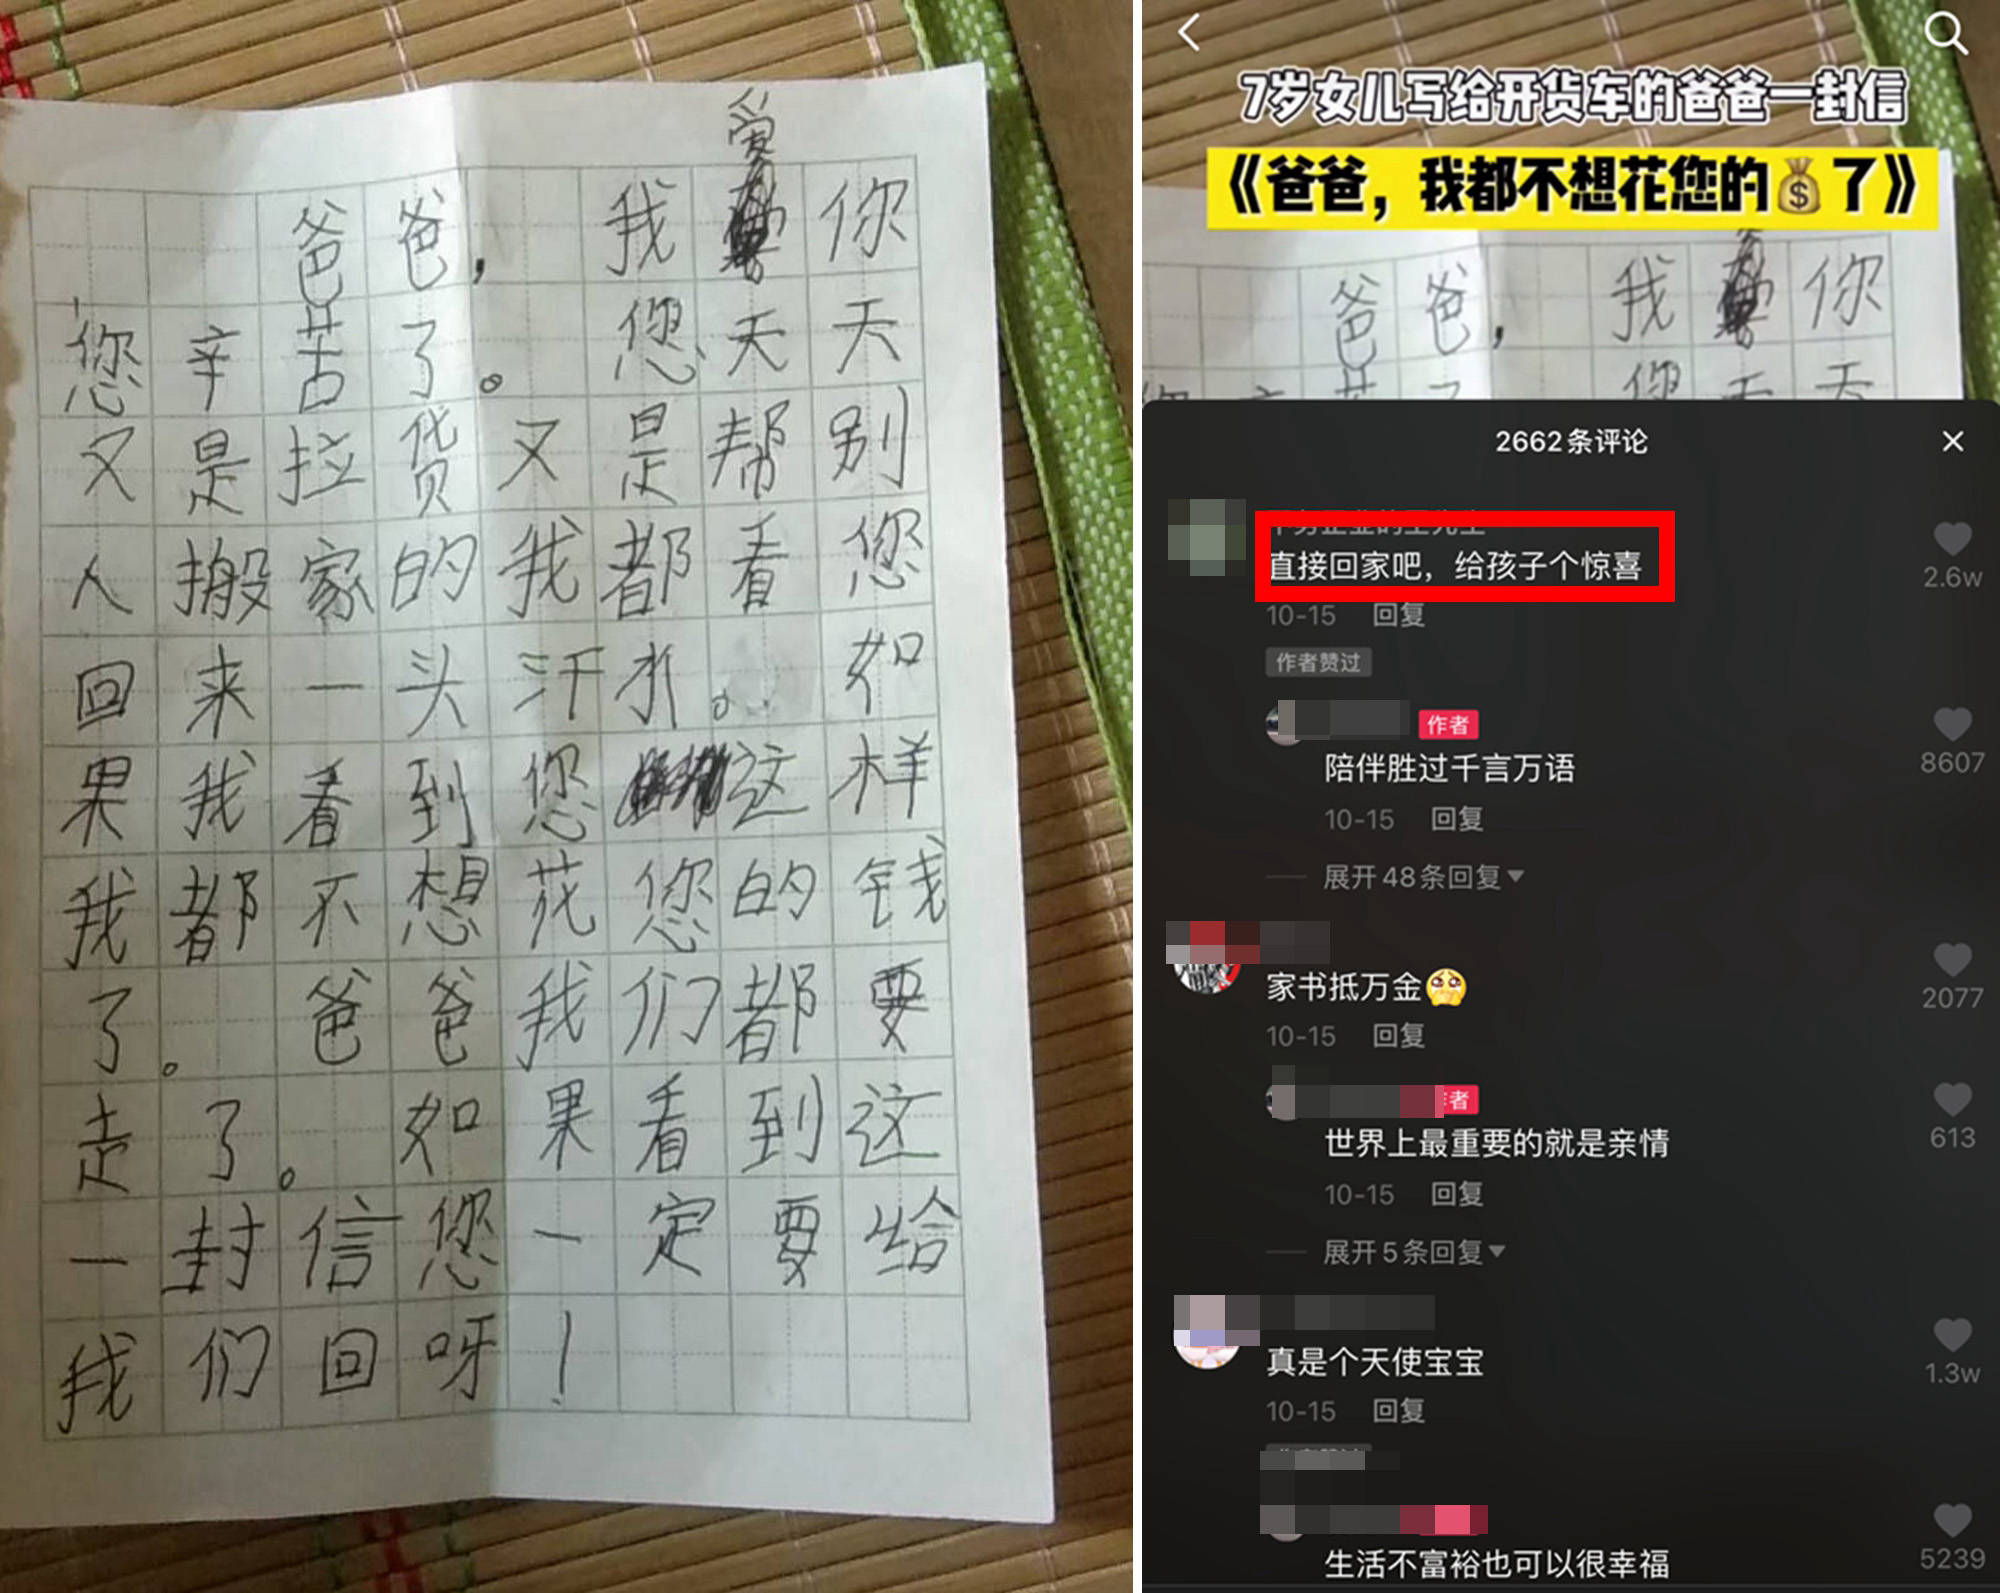 爱
爸爸，我你
您辛苦了。您天天
又是拉货又是帮别
人搬家的我都看您
回来一头汗水。如
果我看到您这样
我都不想花您的钱
了。爸爸我们都要
走了。如果看到这
一封信您一定要给
我们回呀！
7岁女儿写给开货车的爸爸一封信
《爸爸，我都不想花您的💰了》
爸爸，我你
2662条评论
直接回家吧，给孩子个惊喜
10-15 回复
2.6w
作者赞过
作者
陪伴胜过千言万语
8607
10-15 回复
展开48条回复
家书抵万金
2077
10-15 回复
者
世界上最重要的就是亲情
613
10-15 回复
展开5条回复
真是个天使宝宝
1.3w
10-15 回复
生活不富裕也可以很幸福
5239